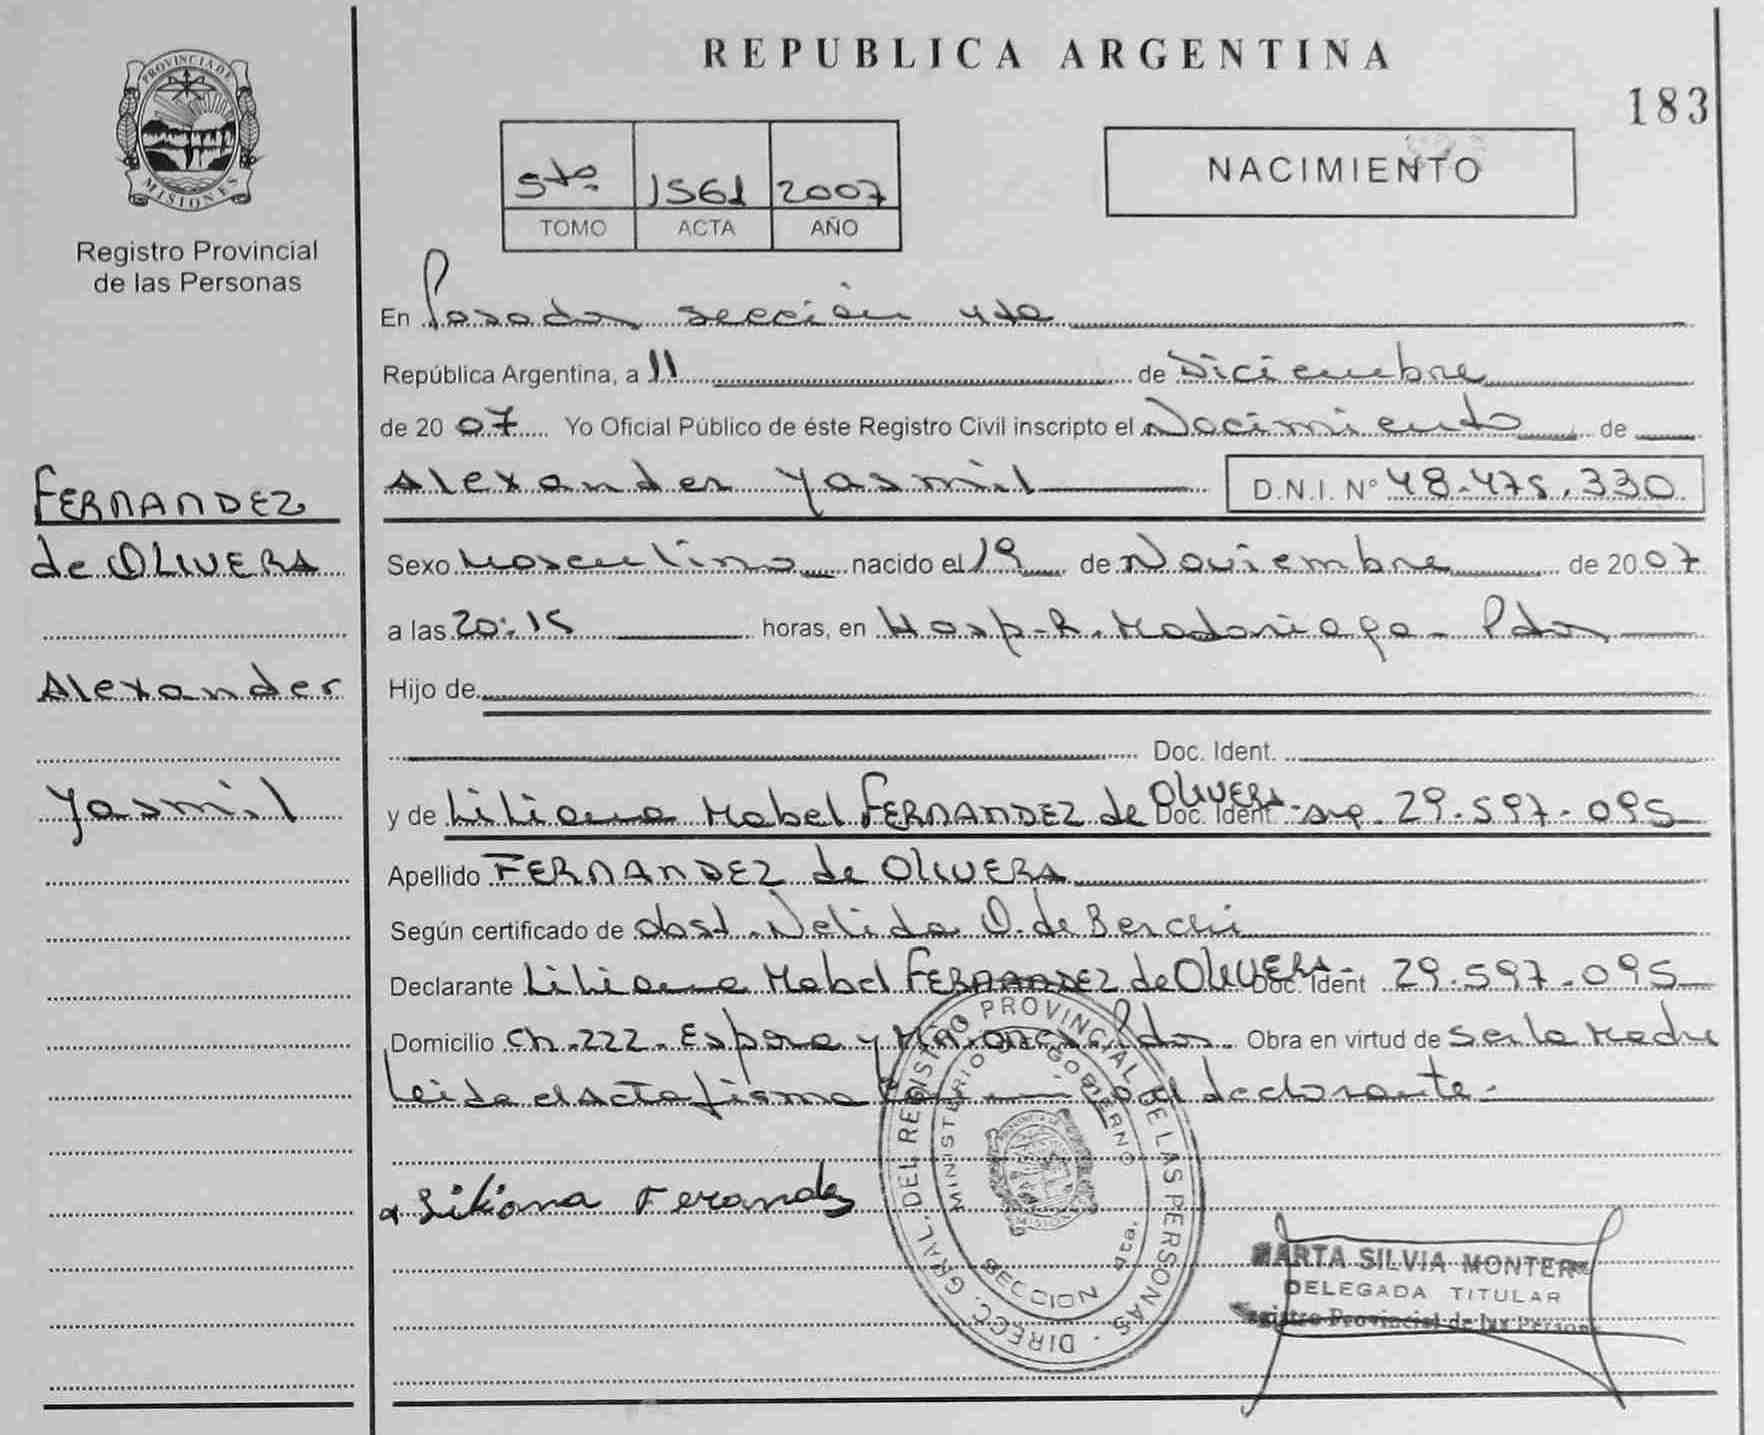 REPUBLICA ARGENTINA
183
PROVINCIA DE
MISIONES
Registro Provincial
de las Personas
5to 1561 2007
TOMO ACTA AÑO
NACIMIENTO
En Posadas sección 4ta
República Argentina, a 11 de Diciembre
de 20 07 Yo Oficial Público de éste Registro Civil inscripto el Nacimiento de
Alexander Yasmil D.N.I. Nº 48.475.330
FERNANDEZ
de OLIVERA
Alexander
Yasmil
Sexo Masculino nacido el 19 de Noviembre de 20 07
a las 20:15 horas, en Hosp. R. Madariaga - Pdas
Hijo de
Doc. Ident.
y de Liliana Mabel FERNANDEZ de OLIVERA - Doc. Ident. arg. 29.597.095
Apellido FERNANDEZ de OLIVERA
Según certificado de obst. Nelida O. de Berchi
Declarante Liliana Mabel FERNANDEZ de OLIVERA - Doc. Ident 29.597.095
Domicilio Ch. 222. Espora y Misiones Pdas. Obra en virtud de ser la Madre
leida el Acta firma el declarante.
Liliana Ferandez
DIRECC. GRAL. DEL REGISTRO PROVINCIAL DE LAS PERSONAS
MINISTERIO DE GOBIERNO
SECCION 4ta.
MARTA SILVIA MONTERO
DELEGADA TITULAR
Registro Provincial de las Personas